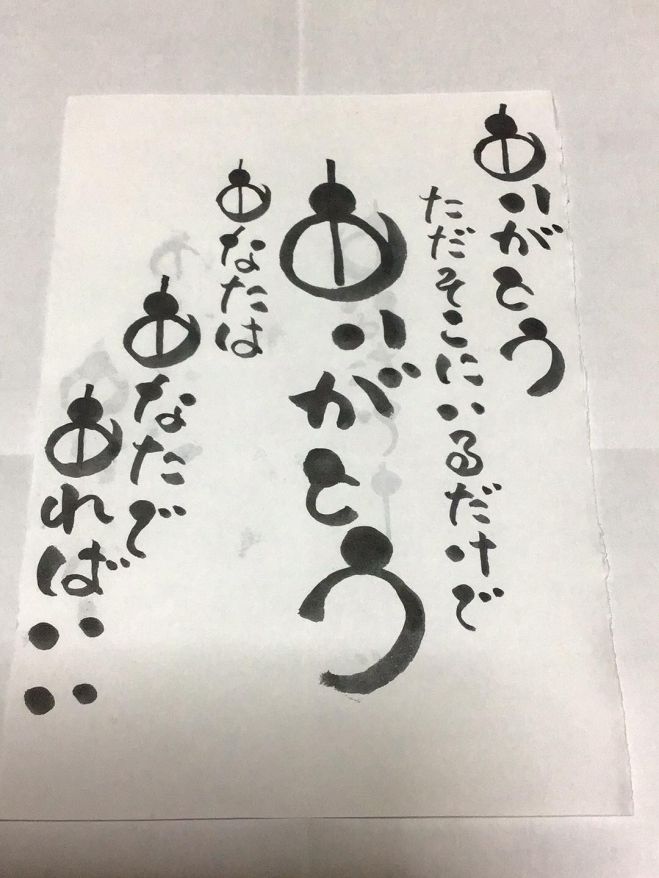 ありがとう
ただそこにいるだけで
ありがとう
あなたは
あなたで
あればいい